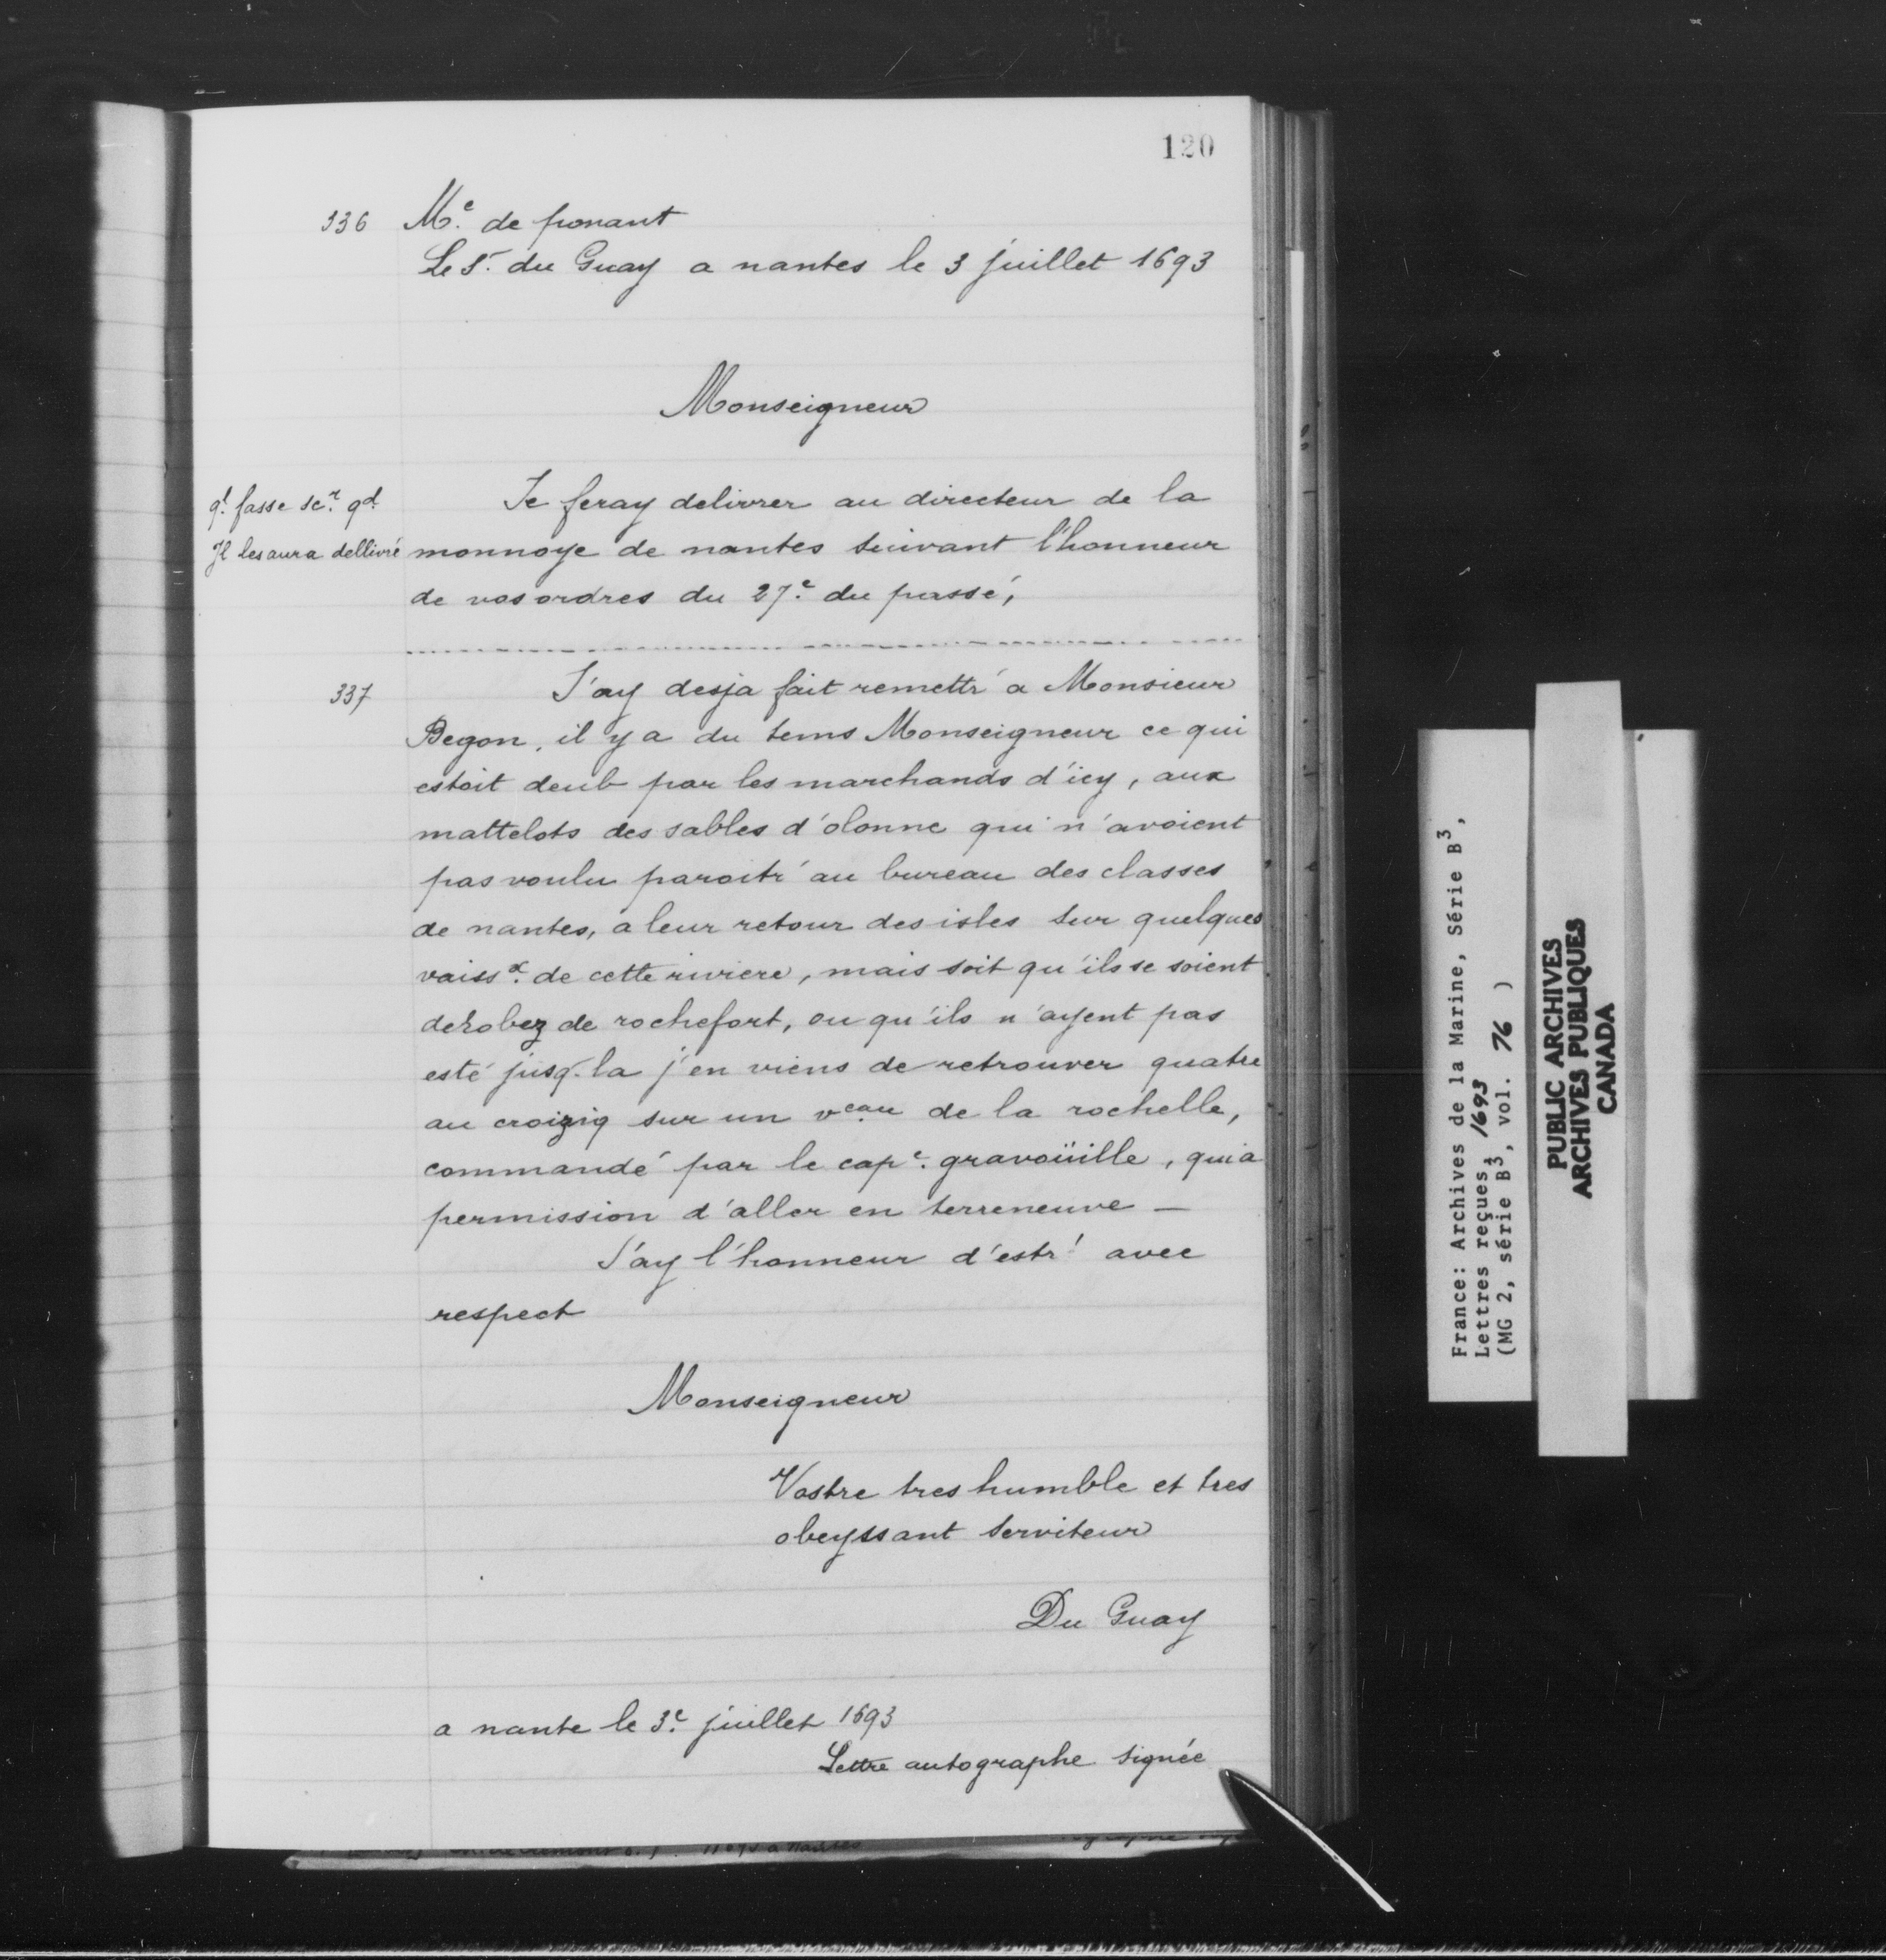 120
336 Mᵉ. de ponant
Le Sʳ. du Guay a nantes le 3 juillet 1693
Monseigneur
qˡ. fasse scʳ. qd.
Il les aura dellivré
Je feray delivrer au directeur de la
monnoye de nantes suivant l'honneur
de vos ordres du 27ᵉ. du passé,
337 J'ay desja fait remettr' a Monsieur
Begon, il y a du tems Monseigneur ce qui
estoit deub par les marchands d'icy, aux
mattelots des sables d'olonne qui n'avoient
pas voulu paroitr' au bureau des classes
de nantes, a leur retour des isles sur quelques
vaissˣ. de cette riviere, mais soit qu'ils se soient
derobez de rochefort, ou qu'ils n'ayent pas
esté jusq. la j'en viens de retrouver quatre
au croizig sur un vᵉᵃᵘ de la rochelle,
commandé par le capᵉ. gravoüille, qui a
permission d'aller en terreneuve —
J'ay l'honneur d'estr' avec
respect
Monseigneur
Vostre tres humble et tres
obeyssant serviteur
Du Guay
a nante le 3ᵉ. juillet 1693
Lettre autographe signée
France: Archives de la Marine, Série B³,
Lettres reçues, 1693
(MG 2, série B³, vol. 76 )
PUBLIC ARCHIVES
ARCHIVES PUBLIQUES
CANADA